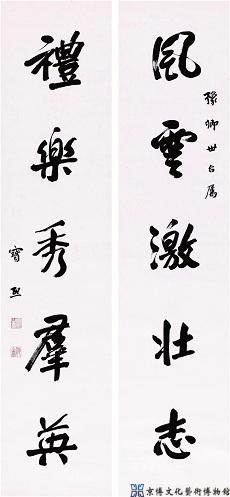 風雲激壯志
豫卿世台屬
禮樂秀羣英
寶熙
京博文化藝術博物館